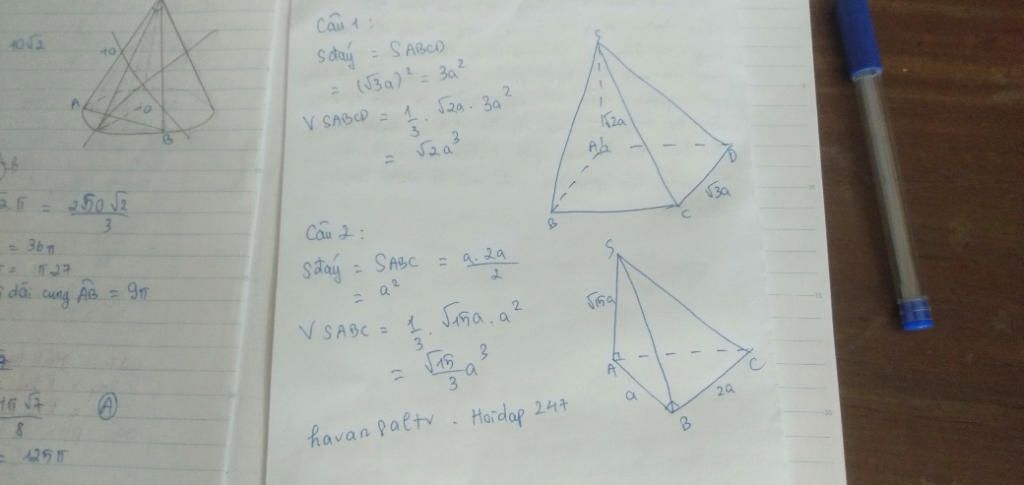 10√2
10
A
B
= 250√2/3
= 36π
= π27
dài cung AB = 9π
A
8
= 125π
Câu 1:
Sđáy = SABCD
= (√3a)² = 3a²
VSABCD = 1/3 . √2a . 3a²
= √2a³
S
√2a
A
D
√3a
B
C
Câu 2:
Sđáy = SABC = a.2a/2
= a²
VSABC = 1/3 . √15a . a²
= √15/3 a³
S
√15a
A
C
a
2a
B
havanpaltv . Hoidap 247